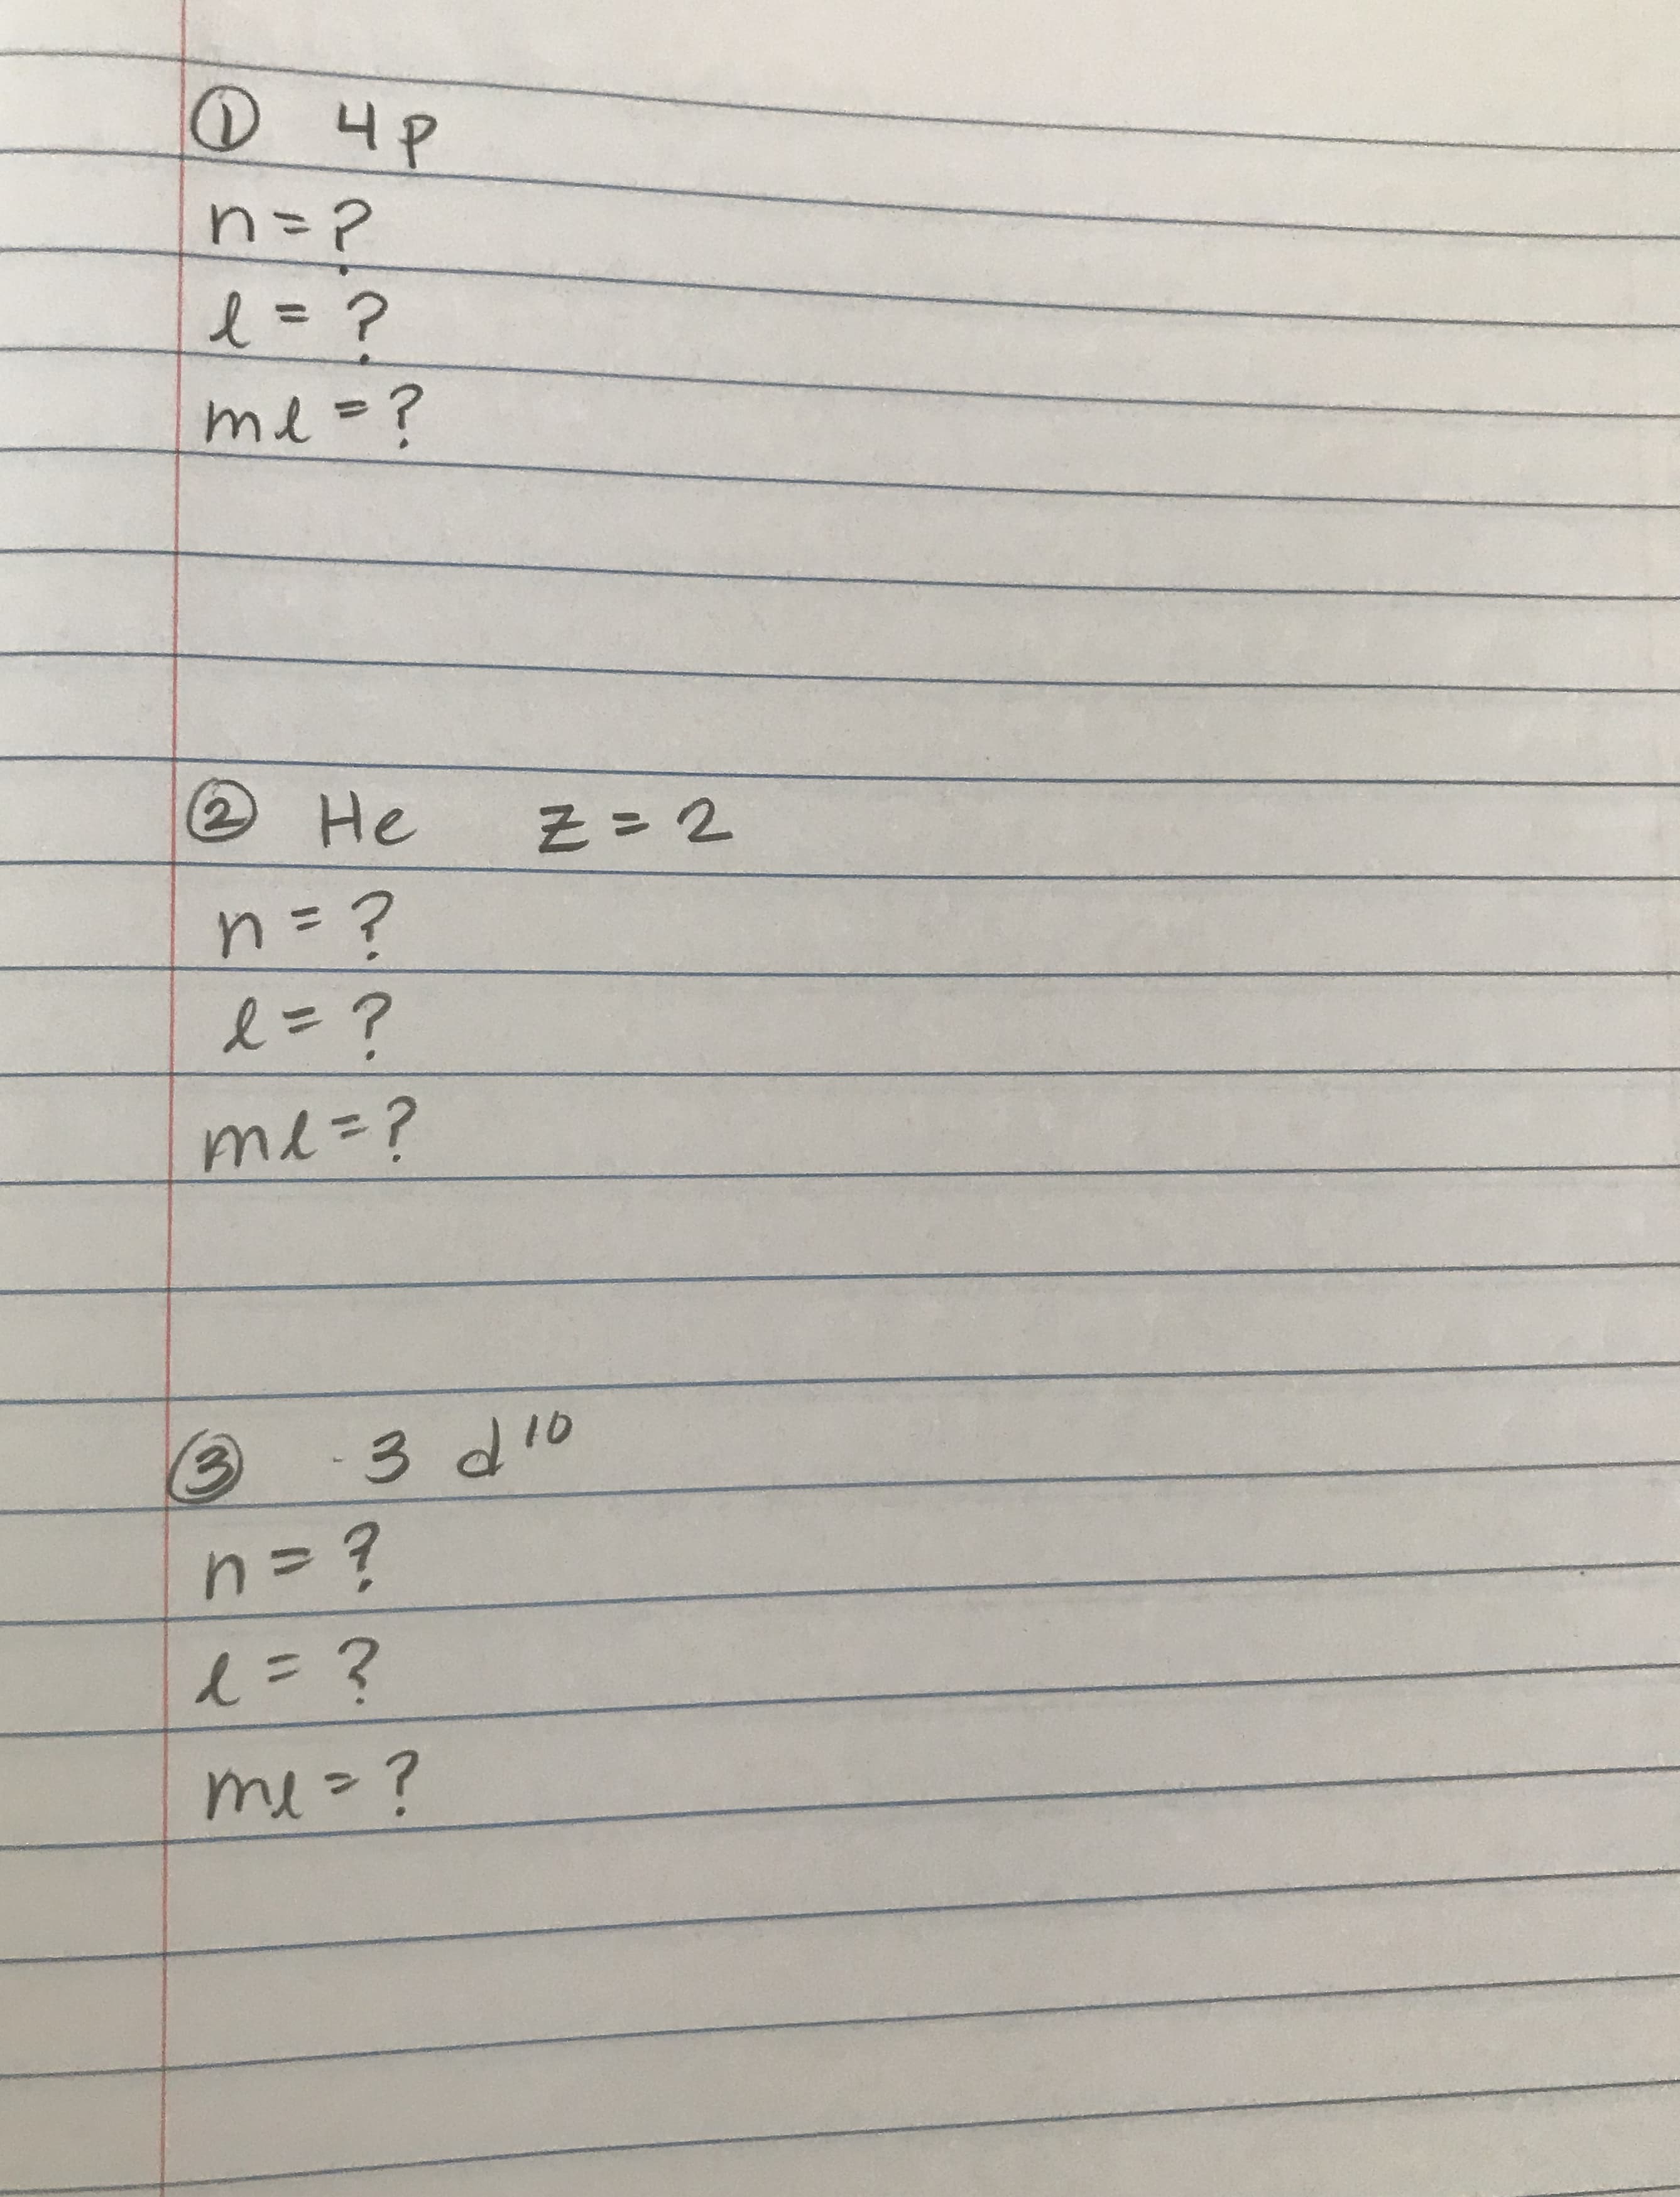 ① 4p
n = ?
l = ?
ml = ?
② He z = 2
n = ?
l = ?
ml = ?
③ 3 d¹⁰
n = ?
l = ?
ml = ?